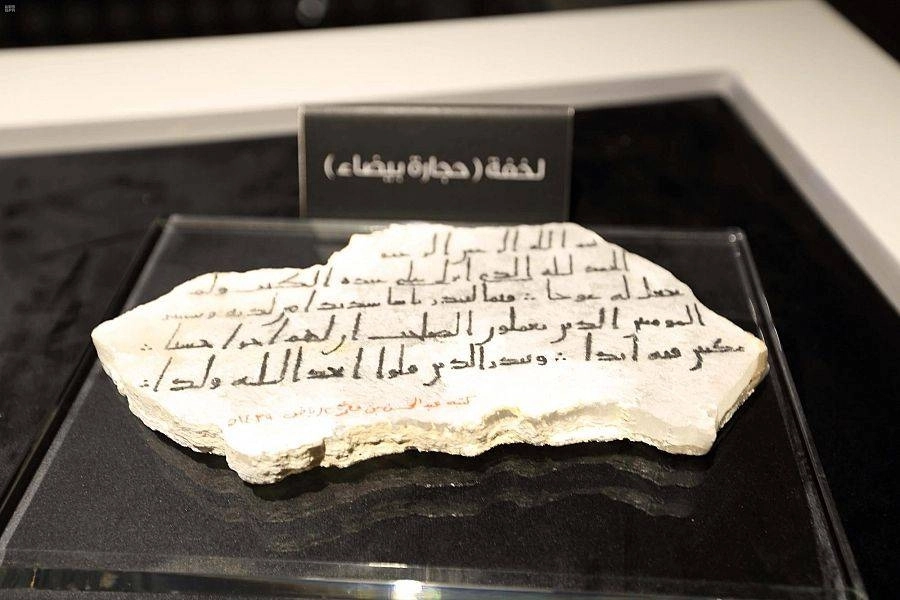 لخفة (حجارة بيضاء)
بسم الله الرحمن الرحيم
الحمد لله الذي انزل على عبده الكتب ولم
يجعل له عوجا ∴ قيما لينذر باسا شديدا من لدنه ويبشر
المومنين الذين يعملون الصلحت ان لهم اجرا حسنا ∴
مكثين فيه ابدا ∴ وينذر الذين قالوا اتخذ الله ولدا ∴
كتبه عبد بن ١٤٣٩